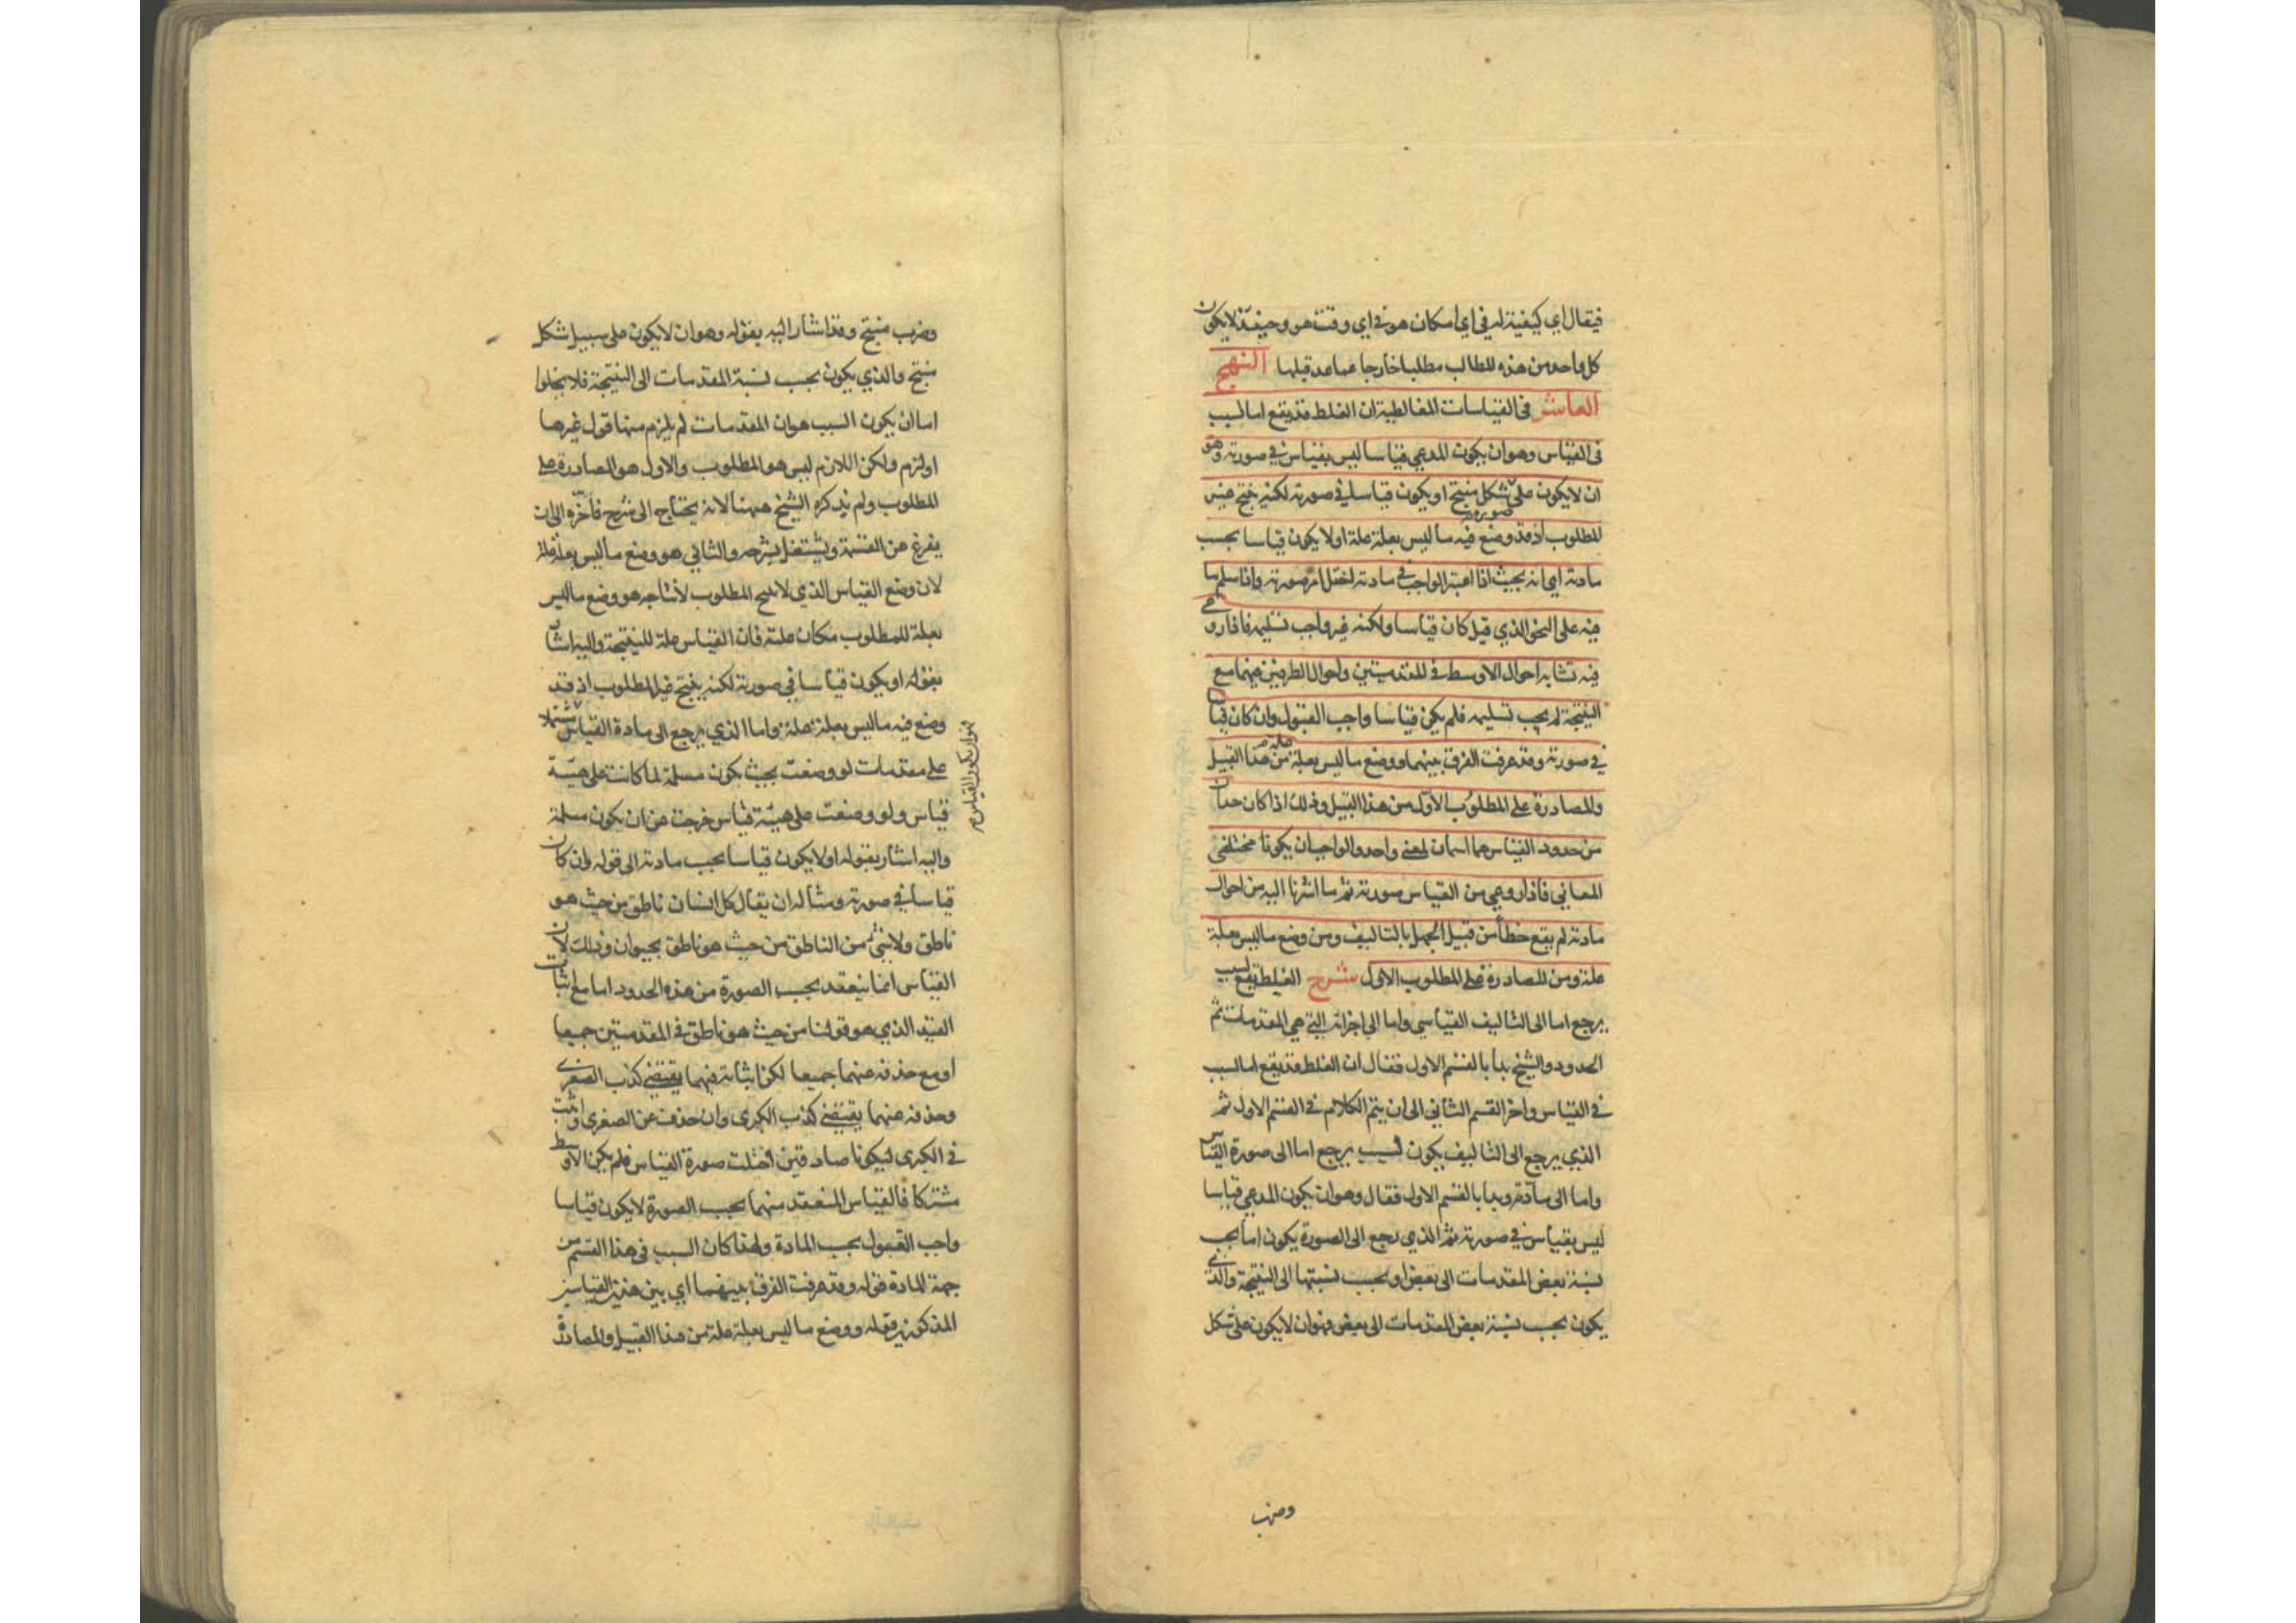 فيقال اي كيفية له في اي مكان هو في اي وقت هو وحينئذ لا يكون
كل واحد من هذه المطالب مطلبا خارجا عما عد قبلها النهج
العاشر في القياسات المغالطية ان الغلط قد يقع اما لسبب
في القياس وهو ان يكون المدعي قياسا ليس بقياس في صورته وهو
ان لا يكون على شكل منتج او يكون قياسا في صورته لكنه ينتج غير
صورة
المطلوب اذ قد وضع فيه ما ليس بعلة علة او لا يكون قياسا بحسب
مادته اي انه بحيث اذا اعتبر الواجب في مادته اختل امر صورته واذا سلم ما
فيه على النحو الذي قيل كان قياسا ولكنه غير واجب تسليمه فاذا روعي
فيه تشابه احوال الاوسط في المقدمتين واحوال الطرفين فيهما مع
النتيجة لم يجب تسليمه فلم يكن قياسا واجب القبول وان كان قياسا
في صورته وقد عرفت الفرق بينهما ووضع ما ليس بعلة علة من هذا القبيل
والمصادرة على المطلوب الاول من هذا القبيل وذلك اذا كان حدان
من حدود القياس هما اسمان لمعنى واحد والواجب ان يكونا مختلفي
المعاني فاذا روعي من القياس صورته ثم ما اشرنا اليه من احوال
مادته لم يقع خطأ من قبيل الجهل بالتاليف ومن وضع ما ليس بعلة
علة ومن المصادرة على المطلوب الاول شرح الغلط يقع لسبب
يرجع اما الى التاليف القياسي واما الى اجزائه التي هي المقدمات ثم
الحدود والشيخ بدأ بالقسم الاول فقال ان الغلط قد يقع اما لسبب
في القياس واخر القسم الثاني الى ان يتم الكلام في القسم الاول ثم
الذي يرجع الى التاليف يكون لسبب يرجع اما الى صورة القياس
واما الى مادته وبدا بالقسم الاول فقال وهو ان يكون المدعي قياسا
ليس بقياس في صورته ثم الذي يرجع الى الصورة يكون اما بحسب
نسبة بعض المقدمات الى بعض او بحسب نسبتها الى النتيجة والذي
يكون بحسب نسبة بعض المقدمات الى بعض فهو ان لا يكون على شكل
وضرب
وضرب منتج وقد اشار اليه بقوله وهو ان لا يكون على سبيل شكل
منتج والذي يكون بحسب نسبة المقدمات الى النتيجة فلا يخلوا
اما ان يكون السبب هو ان المقدمات لم يلزم منها قول غيرها
او لزم ولكن اللازم ليس هو المطلوب والاول هو المصادرة على
المطلوب ولم يذكره الشيخ ههنا لانه يحتاج الى شرح فأخره الى ان
يفرغ من القسمة ويشتغل بشرحه والثاني هو وضع ما ليس بعلة علة
لان وضع القياس الذي لا ينتج المطلوب لانتاجه هو وضع ما ليس
بعلة للمطلوب مكان علته فان القياس علة للنتيجة واليه اشار
بقوله او يكون قياسا في صورته لكنه ينتج غير المطلوب اذ قد
وضع فيه ما ليس بعلة علة واما الذي يرجع الى مادة القياس مشتملا
فهو ان يكون القياس
على مقدمات لو وضعت بحيث يكون مسلمة لما كانت على هيئة
قياس ولو وضعت على هيئة قياس خرجت عن ان يكون مسلمة
واليه اشار بقوله او لا يكون قياسا بحسب مادته الى قوله وان كان
قياسا في صورته ومثاله ان يقال كل انسان ناطق من حيث هو
ناطق ولا شئ من الناطق من حيث هو ناطق بحيوان وذلك لان
القياس انما ينعقد بحسب الصورة من هذه الحدود اما مع اثبات
القيد الذي هو قولنا من حيث هو ناطق في المقدمتين جميعا
او مع حذفه عنهما جميعا لكن اثباته فيهما يقتضي كذب الصغرى
وحذفه عنهما يقتضي كذب الكبرى وان حذفت عن الصغرى واثبت
في الكبرى ليكونا صادقتين اختلت صورة القياس فلم يكن الاوسط
مشتركا فالقياس المنعقد منهما بحسب الصورة لا يكون قياسا
واجب القبول بحسب المادة ولهذا كان السبب في هذا القسم من
جهة المادة قوله وقد عرفت الفرق بينهما اي بين هذين القياسين
المذكورين قوله ووضع ما ليس بعلة علة من هذا القبيل والمصادرة